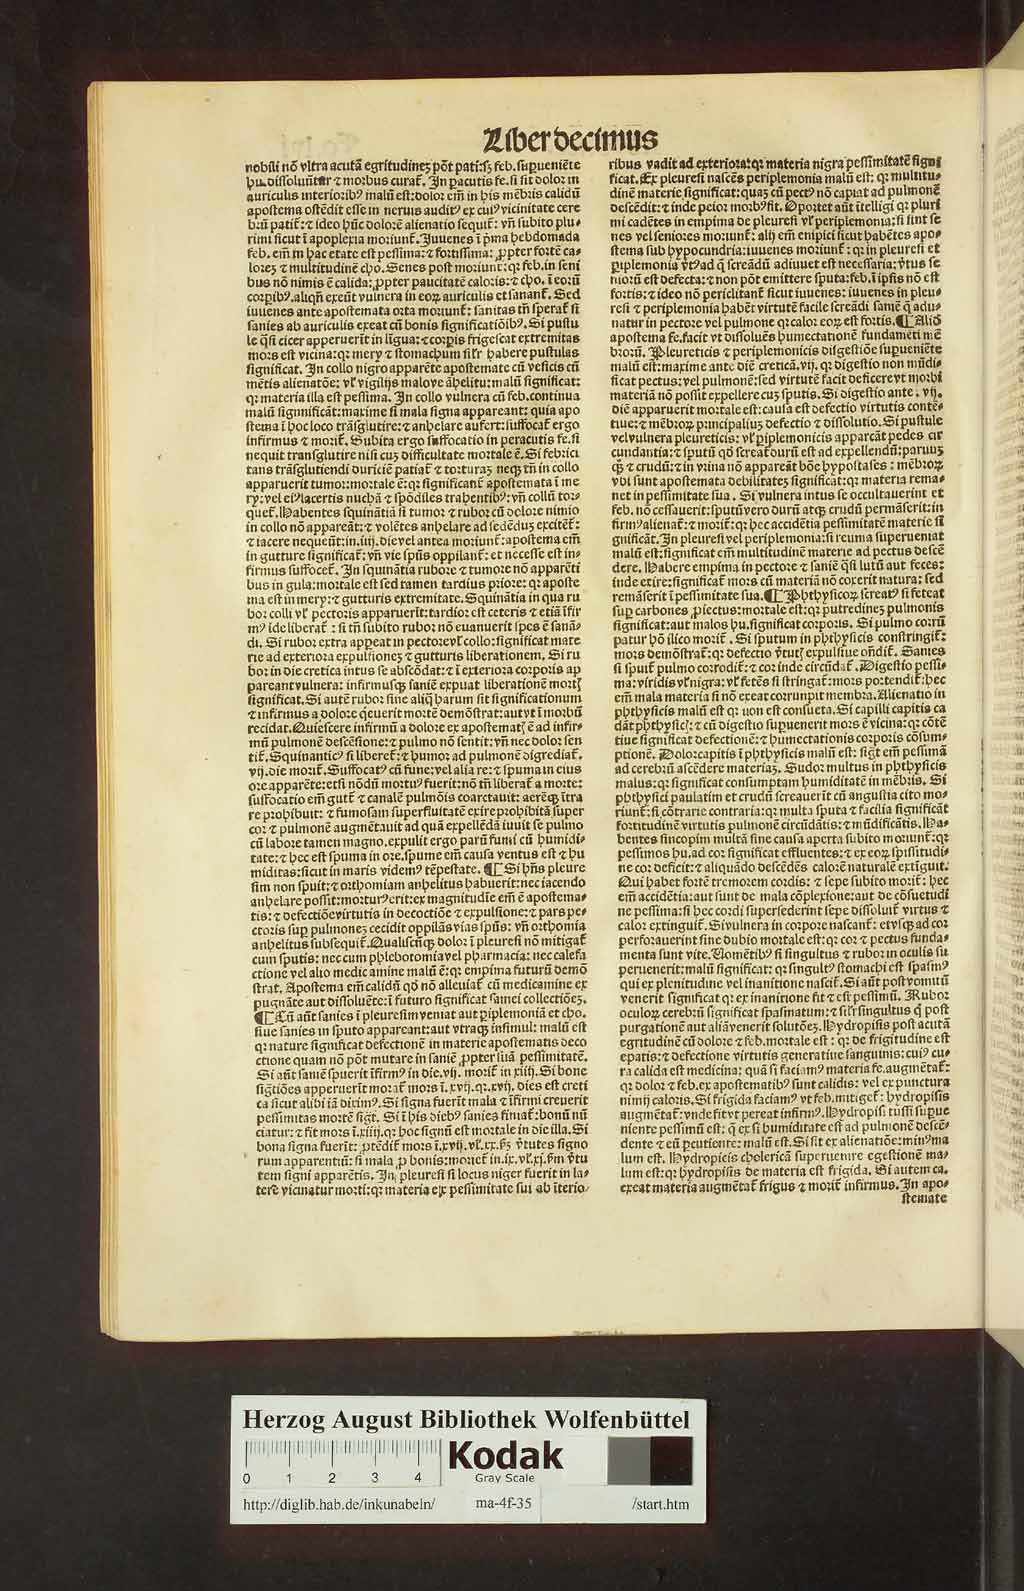 Liber decimus
nobili nō vltra acutā egritudinez pōt pati:sz feb. supueniēte
hu. dissoluūtur ⁊ morbus curat᷑. In pacutis fe. si sit dolor in
auriculis interioribꝰ malū est: dolor em̄ in his mēbris calidū
apostema ostēdit esse in neruis auditꝰ ex cuiꝰ vicinitate cere
brū patit᷑: ⁊ ideo hūc dolorē alienatio sequit᷑: vn̄ subito plu⸗
rimi sicut ī apoplexia moriunt᷑. Iuuenes ī p̄ma hebdomada
feb. em̄ in hac etate est pessima: ⁊ fortissima: ꝓpter fortē ca⸗
lorez ⁊ multitudinē cho. Senes post moriunt᷑: qꝛ feb. in seni
bus nō nimis ē calida: ꝓpter paucitatē caloris: ⁊ cho. ī eorū
corpibꝰ. aliqn̄ exeūt vulnera in eoꝝ auriculis et sanant᷑. Sed
iuuenes ante apostemata orta moriunt᷑: sanitas tn̄ sperat᷑ si
sanies ab auriculis exeat cū bonis significatiōibꝰ. Si pustu
le q̄si cicer apperuerīt in līgua: ⁊ corpis frigescat extremitas
mors est vicina: qꝛ mery ⁊ stomachum sil̓r habere pustulas
significat. In collo nigro apparēte apostemate cū vesicis cū
mētis alienatōe: vl̓ vigilijs malove āhelitu: malū significat:
qꝛ materia illa est pessima. In collo vulnera cū feb. continua
malū signnificāt: maxime si mala signa appareant: quia apo
stema ī hoc loco trāsglutire: ⁊ anhelare aufert: suffocat᷑ ergo
infirmus ⁊ morit᷑. Subita ergo suffocatio in peracutis fe. si
nequit transglutire nisi cuz difficultate mortale ē. Si febrici
tans trāsglutiendi duriciē patiat᷑ ⁊ torturaz neqꝫ tn̄ in collo
apparuerit tumor: mortale ē: qꝛ significant᷑ apostemata ī me
ry: vel eiꝰ lacertis nuchā ⁊ spōdiles trahentibꝰ: vn̄ collū tor⸗
quet᷑. Habentes squinātiā si tumor ⁊ rubor cū dolore nimio
in collo nō appareāt: ⁊ volētes anhelare ad sedēdus excitēt᷑:
⁊ iacere nequeūt: in. iiij. die vel antea moriunt᷑: apostema em̄
in gutture significat᷑: vn̄ vie spūs oppilant᷑: et necesse est in⸗
firmus suffocet᷑. In squinātia rubore ⁊ tumore nō apparēti
bus in gula: mortale est sed tamen tardius priore: qꝛ aposte
ma est in mery: ⁊ gutturis extremitate. Squinātia in qua ru
bor colli vl̓ pectoris apparuerit: tardior est ceteris ⁊ etiā īfir
mꝰ ide liberat᷑: si tn̄ subito rubor nō euanuerit spes ē sanā⸗
di. Si rubor extra appeat in pectore vl̓ collo: significat mate
rie ad exteriora expulsionez ⁊ gutturis liberationem. Si ru
bor in die cretica intus se abscōdat: ⁊ ī exteriora corporis ap
pareant vulnera: infirmusqꝫ saniē expuat liberationē mortz̄
significat. Si autē rubor sine aliq̄ harum sit significationum
⁊ infirmus a dolore q̄euerit mortē demōstrat: aut vt ī morbū
recidat. Quiescere infirmū a dolore ex apostematꝫ ē ad infir⸗
mū pulmonē descēsione: ⁊ pulmo nō sentit: vn̄ nec dolor sen
tit᷑. Squinanticꝰ si liberet᷑: ⁊ humor ad pulmonē digrediat᷑.
vij. die morit᷑. Suffocatꝰ cū fune: vel alia re: ⁊ spuma in eius
ore apparēte: etsi nōdū mortuꝰ fuerit: nō tn̄ liberat᷑ a morte:
suffocatio em̄ gutt᷑ ⁊ canalē pulmōis coarctauit: aerēqꝫ ītra
re prohibuit: ⁊ fumosam superfluitatē exire prohibitā super
cor ⁊ pulmonē augmētauit ad quā expellēdā iuuit se pulmo
cū labore tamen magno. expulit ergo parū fumi cū humidi⸗
tate: ⁊ hec est spuma in ore. spume em̄ causa ventus est ⁊ hu
miditas: sicut in maris videmꝰ tēpestate. ¶ Si hn̄s pleure
sim non spuit: ⁊ orthomiam anhelitus habuerit: nec iacendo
anhelare possit: morturꝰ erit: ex magnitudīe em̄ ē apostema⸗
tis: ⁊ defectiōe virtutis in decoctiōe ⁊ expulsione: ⁊ pars pe⸗
ctoris sup pulmonez cecidit oppilās vias spūs: vn̄ orthomia
anhelitus subsequit᷑. Qualiscūqꝫ dolor ī pleuresi nō mitigat᷑
cum sputis: nec cum phlebotomia vel pharmacia: nec calefa
ctione vel alio medicamine malū ē: qꝛ empima futurū demō
strat. Apostema em̄ calidū qd̄ nō alleuiat᷑ cū medicamine ex
pugnāte aut dissoluēte: ī futuro significat saniei collectiōez.
¶ Cū aūt sanies ī pleuresim veniat aut ꝑiplemoniā et cho.
siue sanies in sputo appareant: aut vtraqꝫ insimul: malū est
qꝛ nature significat defectionē in materie apostematis deco
ctione quam nō pōt mutare in saniē ꝓpter suā pessimitatē.
Si aūt saniē spuerit īfirmꝰ in die. vij. morit᷑ in xiiij. Si bone
sigtiōes apperuerīt morat᷑ mors ī. xvij. qꝛ. xvij. dies est creti
ca sicut alibi iā diximꝰ. Si signa fuerīt mala ⁊ īfirmi creuerit
pessimitas mortē sigt̄. Si ī his diebꝰ sanies finiat᷑: bonū nū
ciatur: ⁊ fit mors ī. xiiij. qꝛ hoc signū est mortale in die illa. Si
bona signa fuerīt: ꝓtēdit᷑ mors ī. xvij. vl̓. xx. ẜm v̓tutes signo
rum apparentiū: si mala ꝓ bonis: moriet᷑ in. ix. vl̓. xj. ẜm v̓tu
tem signi apparētis. In pleuresi si locus niger fuerit in la⸗
tere vicinatur morti: qꝛ materia ex pessimitate sui ab īterio⸗
ribus vadit ad exteriora: qꝛ materia nigra pessimitatē signi
ficat. Ex pleuresi nascēs periplemonia malū est: qꝛ multitu⸗
dinē materie significat: quaz cū pectꝰ nō capiat ad pulmonē
descēdit: ⁊ inde peior morbꝰ fit. Oportet aūt ītelligi qꝛ pluri
mi cadētes in empima de pleuresi vl̓ periplemonia: si sint se
nes vel seniores moriunt᷑: alij em̄ enipici sicut habētes apo⸗
stema sub hypocundria: iuuenes moriunt᷑: qꝛ in pleuresi et
ꝑiplemonia v̓tꝰ ad q̄ screādū adiuuet est necessaria: v̓tus se
niorū est defecta: ⁊ non pōt emittere sputa: feb. ī ipsis nō est
fortis: ⁊ ideo nō periclitant᷑ sicut iuuenes: iuuenes in pleu⸗
resi ⁊ periplemonia habēt virtutē facile screādi saniē q̄ adu⸗
natur in pectore vel pulmone qꝛ calor eoꝝ est fortis. ¶ Aliqd̄
apostema fe. facit vt dissoluēs humectationē fundamēti mē
brorū. Pleureticis ⁊ periplemonicis digestiōe supueniēte
malū est: maxime ante diē creticā. vij. qꝛ digestio non mūdi⸗
ficat pectus: vel pulmonē: sed virtutē facit deficere vt morbi
materiā nō possit expellere cuz sputis. Si digestio ante. vij.
diē apparuerit mortale est: causa est defectio virtutis contē⸗
tiue: ⁊ mēbroꝝ principaliuz defectio ⁊ dissolutio. Si pustule
vel vulnera pleureticis: vl̓ ꝑiplemonicis apparēāt pedes cir
cundantia: ⁊ sputū qd̄ screat᷑ durū est ad expellendū: paruuz
qꝫ ⁊ crudū: ⁊ in vrina nō appareāt bōe hypostases: mēbroꝝ
vbi sunt apostemata debilitatez significat: qꝛ materia rema⸗
net in pessimitate sua. Si vulnera intus se occultauerint et
feb. nō cessauerit: sputū vero durū atqꝫ crudū permāserit: in
firmꝰ alienat᷑: ⁊ morit᷑: qꝛ hec accidētia pessimitatē materie si
gnificāt. In pleuresi vel periplemonia: si reuma superueniat
malū est: significat em̄ multitudinē materie ad pectus descē
dere. Habere empima in pectore ⁊ saniē q̄si lutū aut feces:
inde exire: significat᷑ mors cū materiā nō coxerit natura: sed
remāserit ī pessimitate sua. ¶ Phthysicoꝝ screatꝰ si feteat
sup carbones ꝓiectus: mortale est: qꝛ putredinez pulmonis
significat: aut malos hu. significat corporis. Si pulmo corrū
patur hō ilico morit᷑. Si sputum in phthysicis constringit᷑:
mors demōstrat᷑: qꝛ defectio v̓tutꝫ expulsiue ōndit᷑. Sanies
si spuit᷑ pulmo corrodit᷑: ⁊ cor inde circūdat᷑. Digestio pessi⸗
ma: viridis vl̓ nigra: vl̓ fetēs si stringat᷑: mors portendit᷑: hec
em̄ mala materia si nō exeat corrumpit membra. Alienatio in
phthysicis malū est qꝛ non est consueta. Si capilli capitis ca
dāt phthysicꝫ: ⁊ cū digestio supuenerit mors ē vicina: qꝛ cōtē
tiue significat defectionē: ⁊ humectationis corporis cōsum⸗
ptionē. Dolor capitis ī phthysicis malū est: sigt̄ em̄ pessimā
ad cerebrū ascēdere materiaz. Sudor multus in phthysicis
malus: qꝛ significat consumptam humiditatē in mēbris. Si
phthysici paulatim et crudū screauerit cū angustia cito mo⸗
riunt᷑: si cōtrarie contraria: qꝛ multa sputa ⁊ facilia significāt
fortitudinē virtutis pulmonē circūdātis: ⁊ mūdificātis. Ha⸗
bentes sincopim multā sine causa aperta subito moriunt᷑: qꝛ
pessimos hu. ad cor significat effluentes: ⁊ ex eoꝝ spissitudi⸗
ne cor deficit: ⁊ aliquādo descēdēs calorē naturalē extīguit.
Qui habet fortē tremorem cordis: ⁊ sepe subito morit᷑: hec
em̄ accidētia: aut sunt de mala cōplexione: aut de cōsuetudi
ne pessima: si hec cordi supersederint sepe dissoluit᷑ virtus ⁊
calor extinguit᷑. Si vulnera in corpore nascant᷑: etvsqꝫ ad cor
perforauerint sine dubio mortale est: qꝛ cor ⁊ pectus funda⸗
menta sunt vite. Vomētibꝰ si singultus ⁊ rubor in oculis su
peruenerit: malū significat: qꝛ singultꝰ stomachi est spasmꝰ
qui ex plenitudine vel inanitione nascit᷑. Si aūt post vomitū
venerit significat qꝛ ex inanitione fit ⁊ est pessimū. Rubor
oculoꝝ cerebrū significat spasmatum: ⁊ sil̓r singultus q̄ post
purgationē aut aliā venerit solutōez. Hydropisis post acutā
egritudinē cū dolore ⁊ feb. mortale est: qꝛ de frigitudine est
epatis: ⁊ defectione virtutis generatiue sanguinis: cuiꝰ cu⸗
ra calida est medicina: quā si faciamꝰ materia fe. augmētat᷑:
qꝛ dolor ⁊ feb. ex apostematibꝰ sunt calidis: vel ex punctura
nimij caloris. Si frigida faciamꝰ vt feb. mitiget᷑: hydropisis
augmētat᷑: vnde fit vt pereat infirmꝰ. Hydropisi tussi supue
niente pessimū est: q̄ ex si humiditate est ad pulmonē descē⸗
dente ⁊ eū pcutiente: malū est. Si sit ex alienatiōe: minꝰ ma
lum est. Hydropicis cholericā superuenire egestionē ma⸗
lum est: qꝛ hydropisis de materia est frigida. Si autem ca.
exeat materia augmētat᷑ frigus ⁊ morit᷑ infirmus. In apo⸗
stemate
Herzog August Bibliothek Wolfenbüttel
0 1 2 3 4
Kodak
Gray Scale
http://diglib.hab.de/inkunabeln/ ma-4f-35 /start.htm